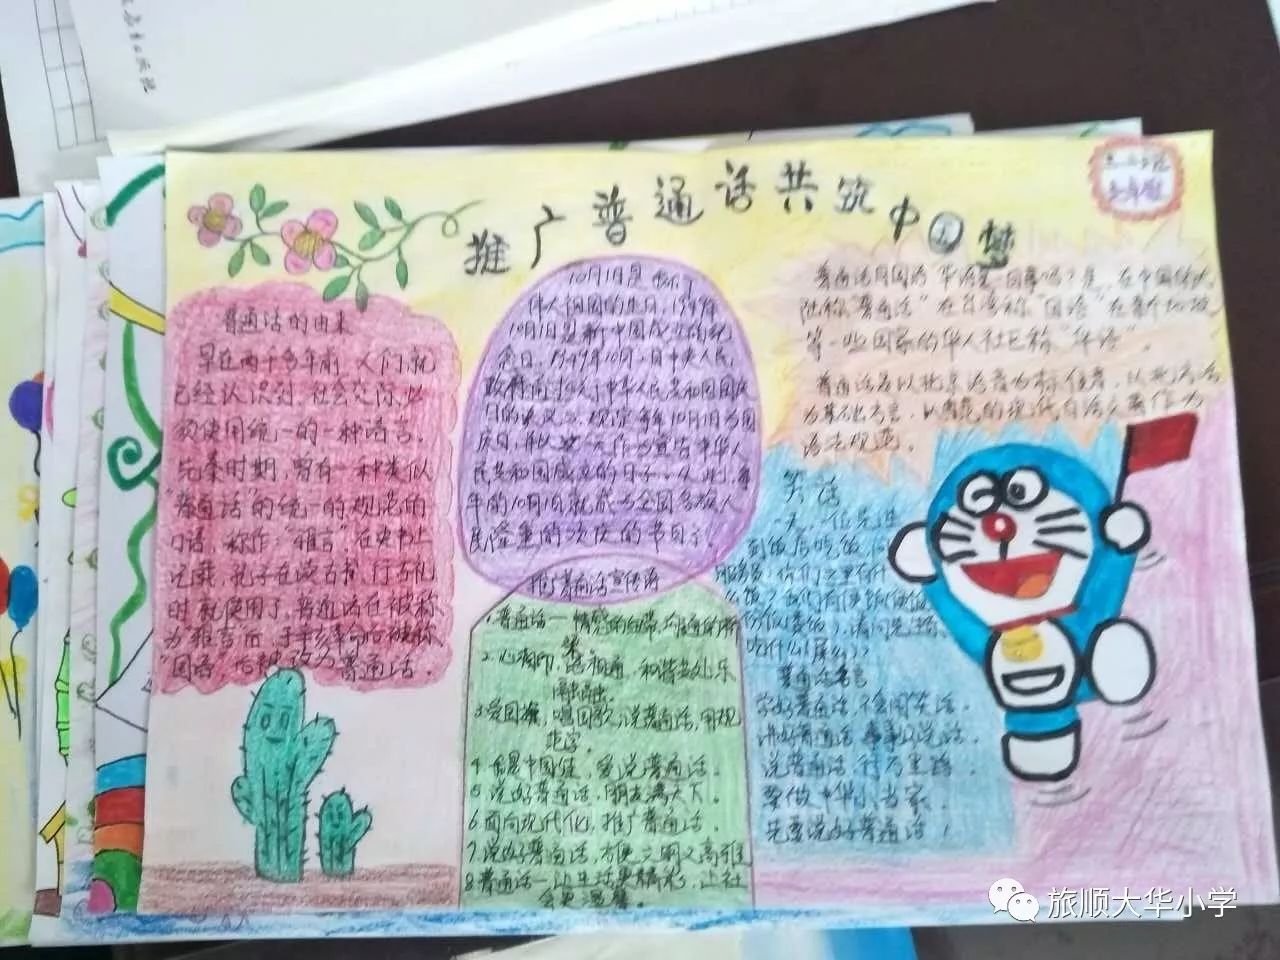 推广普通话共筑中国梦
普通话的由来
早在两千多年前,人们就
已经认识到,社会交际必
须使用统一的一种语言。
先秦时期,曾有一种类似
"普通话"的统一的规范的
口语,称作"雅言",在史书上
记载,孔子在读古书,行古礼
时就使用了,普通话在被称
为雅言后,于
"国语",后被改为普通话。
10月1日是我们
伟大祖国的生日,1949年
10月1日是新中国成立的纪
念日,1949年10月2日中央人民
政府通过《关于中华人民共和国国庆
日的决议》,规定每年10月1日为国
庆日,并以这一天作为宣告中华人
民共和国成立的日子。从此,每
年的10月1日就成为全国各族人
民隆重的欢庆的节日了。
推广普通话宣传语
1.普通话—情感的纽带,沟通的桥
梁
2.心相印,语相通,和谐共处乐
融融。
3.爱国旗,唱国歌,说普通话,用规
范字。
4.有晨中国娃,爱说普通话。
5.说好普通话,朋友满天下。
6.面向现代化,推广普通话。
7.说好普通话,方便文明又高雅
8.普通话—让生活更精彩,让社
会更温馨。
普通话同国语、华语是一回事吗?是,在中国的大
陆称"普通话"在台湾称"国语"在新加坡
等一些国家的华人社区称"华语"。
普通话是以北京语音为标准音,以北方话
为基础方言,以典范的现代白话文著作为
语法规范。
笑话
一天,一位先生
到饭店吃饭,问
服务员:你们这里有什
普通话名言
学好普通话,不会闹笑话。
讲好普通话,事事以说话。
说普通话,行万里路
要做中华小当家,
先要说好普通话!
旅顺大华小学